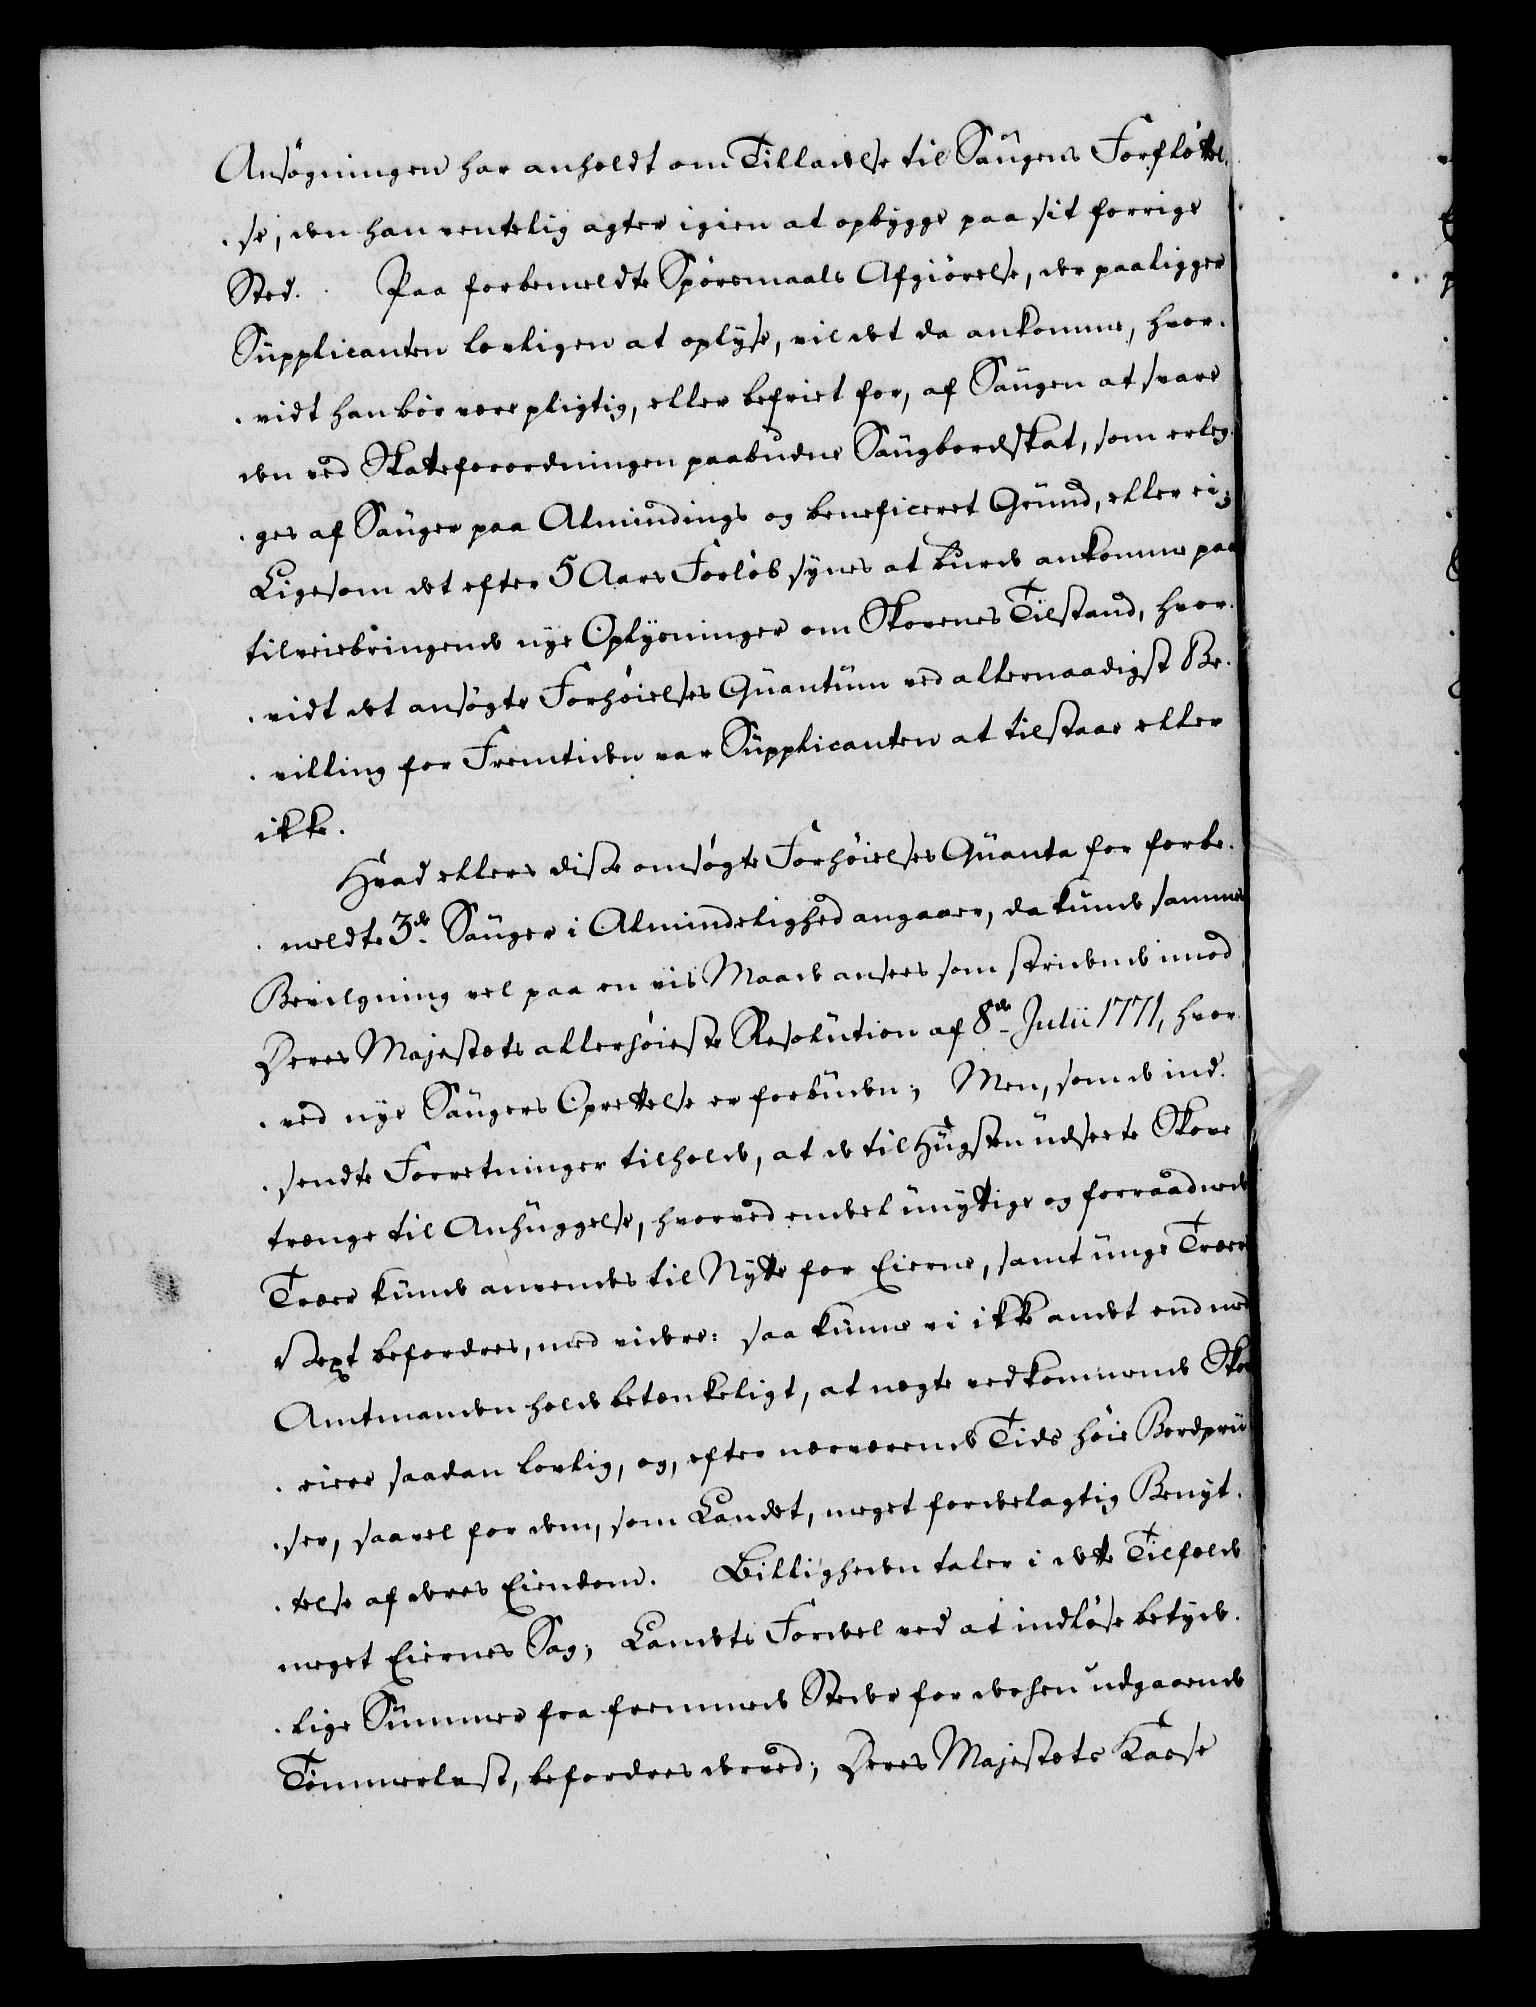 Ansøgningen har anholdt om Tilladelse til Saugens Forfløttel-
se, den han ventelig agter igien at opbygge paa sit forrige
Sted. Paa forbemeldte Spørsmaals Afgiørelse, der paaligger
Supplicanten lovligen at oplyse, vil det da ankomme, hvor-
vidt han bør være pligtig, eller befriet for, af Saugen at svare
den ved Skatteforordningen paabudne Saugbordskat, som erleg-
ges af Sauger paa Almindings og beneficeret Grund, eller ei;
Ligesom det efter 5 Aars Forløb synes at burde ankomme paa
tilveiebringende nye Oplysninger om Skovenes Tilstand, hvor-
vidt det ansøgte Forhøielses Quantum ved allernaadigst Be-
villing for Fremtiden var Supplicanten at tilstaae eller
ikke.
Hvad ellers disse omsøgte Forhøielses Quanta for forbe-
meldte 3de Sauger i Almindelighed angaaer, da kunde sammes
Bevilgning vel paa en vis Maade ansees som stridende imod
Deres Majestæts allerhøieste Resolution af 8de Julii 1771, hvor-
ved nye Saugers Oprettelse er forbuden; Men, som de ind-
sendte Forretninger tilholde, at de til Hugsten udseete Skove
trænge til Anhuggelse, hvorved endeel unyttige og forraadnede
Træer kunde anvendes til Nytte for Eierne, samt unge Træers
Vext befordres, med videre: saa kunne vi ikke andet end med
Amtmanden holde betænkeligt, at nægte vedkommende Skov-
eiere saadan lovlig, og, efter nærværende Tids høie Bordpri-
ser, saavel for dem, som Landet, meget fordelagtig Benyt-
telse af deres Eiendom. Billigheden taler i dette Tilfælde
meget Eiernes Sag; Landets Fordeel ved at indløse betyde-
lige Summer fra fremmede Steder for desen udgaaende
Tømmerlast, befordres derved; Deres Majestæts Kasse